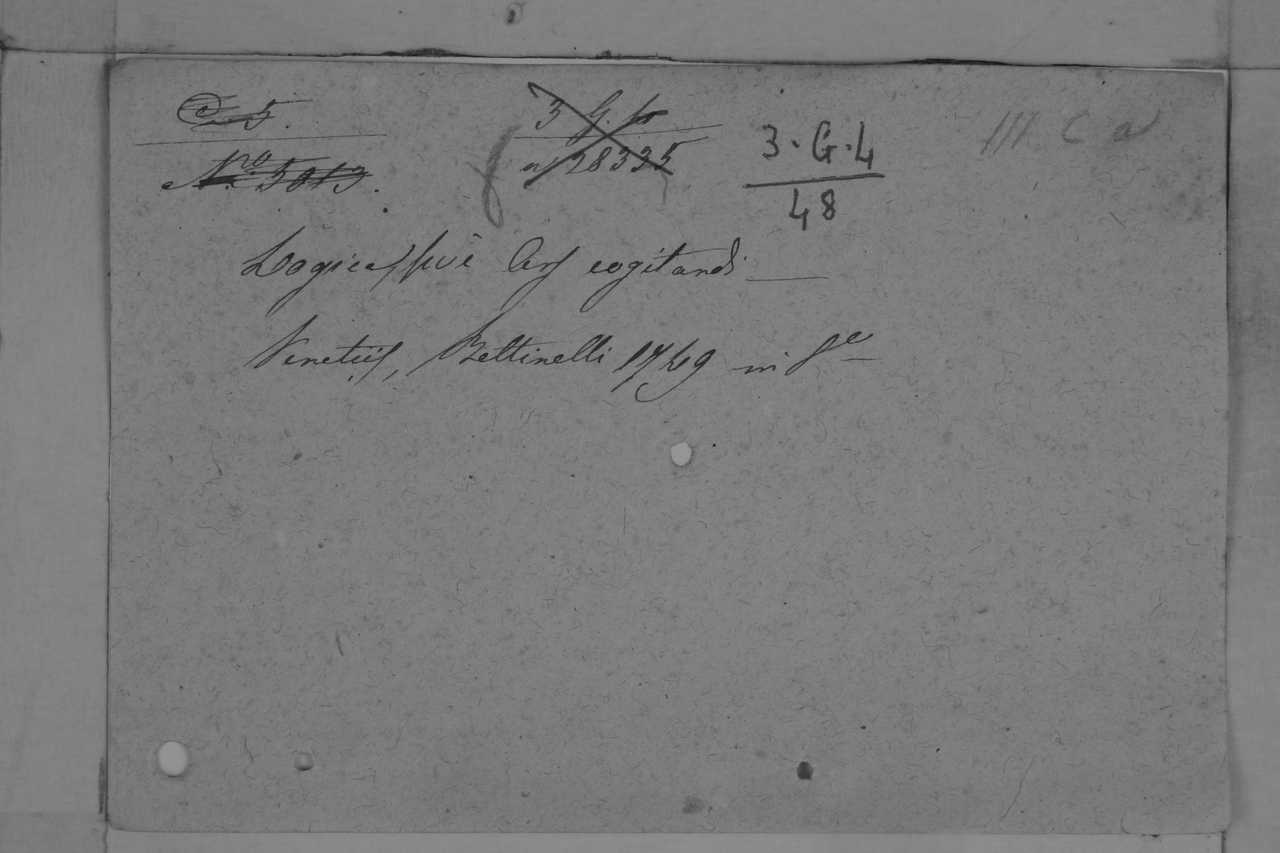 C. 5.
Nro. 5013.
3 G. 4
n. 28335
3·G·4
48
III C a
Logica, sive Ars cogitandi
Venetiis, Bettinelli 1749 in 8e